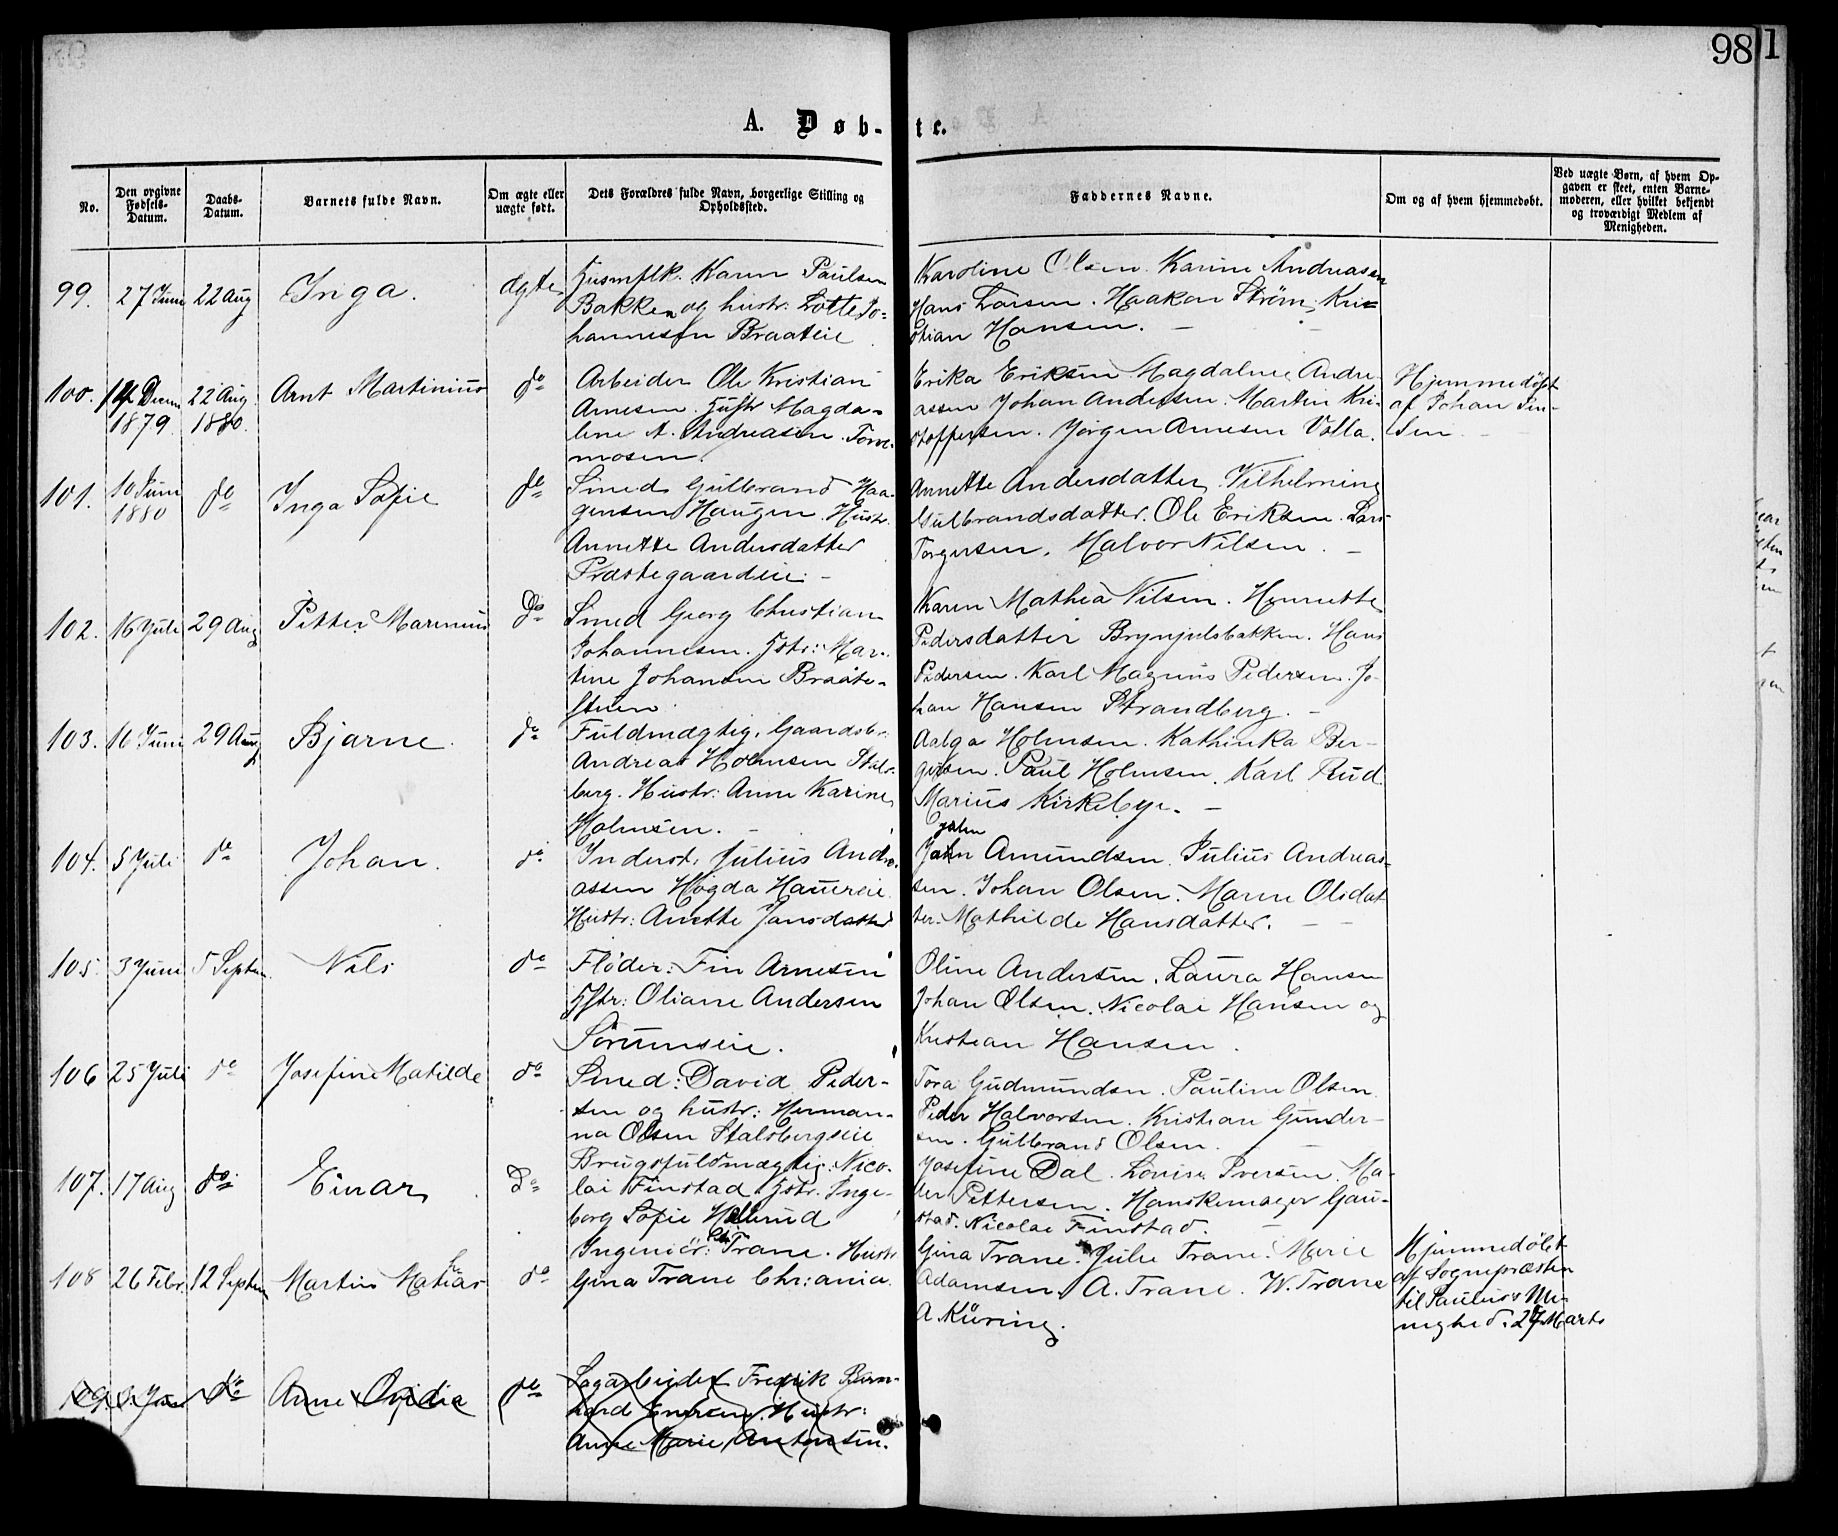 98
1
A. Døb-
te.
No.
Den opgivne Fødsels-Datum.
Daabs-Datum.
Barnets fulde Navn.
Om ægte eller uægte født.
Dets Forældres fulde Navn, borgerlige Stilling og Opholdssted.
Faddernes Navne.
Om og af hvem hjemmedøbt.
Ved uægte Børn, af hvem Opgaven er skeet, enten Barnemoderen, eller hvilket bekjendt og troværdigt Medlem af Menigheden.
99. 27 Juni 22 Aug Inga. ægte Karen Paulsen
Bakken og hustr: Lotte Jo-
hannessen Braateie
Karoline Olsen. Karine Andreasen
Hans Larsen. Haakon Strøm, Kri-
stian Hansen. —
100. 14 Decem 1879 22 Aug. 1880. Arnt Martinius do Arbeider Ole Kristian
Arnesen. Hustr Magda-
lene A. Andreasen. Torve-
mosen.
Erika Eriksen Magdalene Andre-
assen Johan Andersen. Martin Kri-
stoffersen. Jørgen Arnesen Volla.
Hjemmedøbt
af Johan Jen-
sen
101. 10 Juni 1880 do Inga Sofie do Smed Gulbrand Haa-
gensen Haugen. Hustr.
Annette Andersdatter
Præstegaardeie. —
Annette Andersdatter, Vilhelmine
Gulbrandsdatter. Ole Eriksen. Lars
Torgersen. Halvor Nilsen. —
102. 16 Juli 29 Aug Petter Marinius Do Smed Georg Christian
Johannesen. Hstr: Mar-
tine Johansen Braate-
stuen.
Karen Mathea Nilsen. Henriette
Pedersdatter Brynjulsbakken. Hans
Pedersen. Karl Magnus Pedersen. Jo-
han Hansen Strandberg. —
103. 16 Juni 29 Aug Bjarne. do Fuldmægtig, Gaardsbr.
Andreas Holmsen Stals-
berg. Hustr: Anne Karine
Holmsen. —
Aalga Holmsen. Kathinka Ber-
gersen. Paul Holmsen. Karl Rud
Marius Kirkebye. —
104. 5 Juli do Johan. do Inderst. Julius Andre-
assen Høgda Hauereie
Hustr: Anette Jansdatter
John Amundsen. Julius Andreas-
sen. Johan Olsen. Maren Olsdat-
ter. Mathilde Hansdatter. — —
105. 3 Juni 5 Septem Nils do Fløder: Fin Arnesen
Hstr: Oliane Andersen
Sørumseie.
Oline Andersen. Laura Hansen
Johan Olsen. Nicolai Hansen og
Kristian Hansen.
106 25 Juli do Josefine Matilde do Smed: David Peder-
sen og hustr: Herman-
na Olsen Stalsbergseie
Tora Gudmundsen. Pauline Olsen.
Peder Halvorsen. Kristian Gunder-
sen. Gulbrand Olsen. —
107. 17 Aug do Einar do Brugsfuldmægtig: Nico-
lai Finstad Hstr. Inge-
borg Sofie
Josefine Dal. Lovise Iversen. Ma-
Pettersen. Hanskemager Gau-
stad. Nicolai Finstad. —
108 26 Febr. 12 Septem Martin Matias do Ingeniør: Trane. Hustr
Gina Trane Chr:ania.
Gina Trane. Julie Trane. Marie
Adamsen, A. Trane. W. Trane
A. Küring.
Hjemmedøbt
af Sognepræsten
til Paulus's Me-
nighed. 27 Marts
109. Juni do Anne Ovidia do Sagarbeider Fredrik Bern-
hard Enersen. Hustr:
Anne Marie Antonsen.